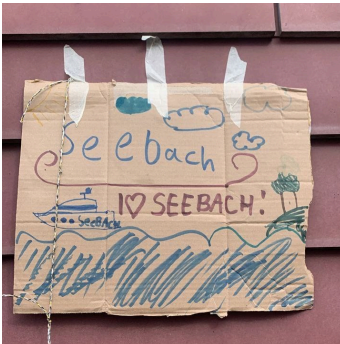 Seebach
I ♡ SEEBACH!
SEEBACH